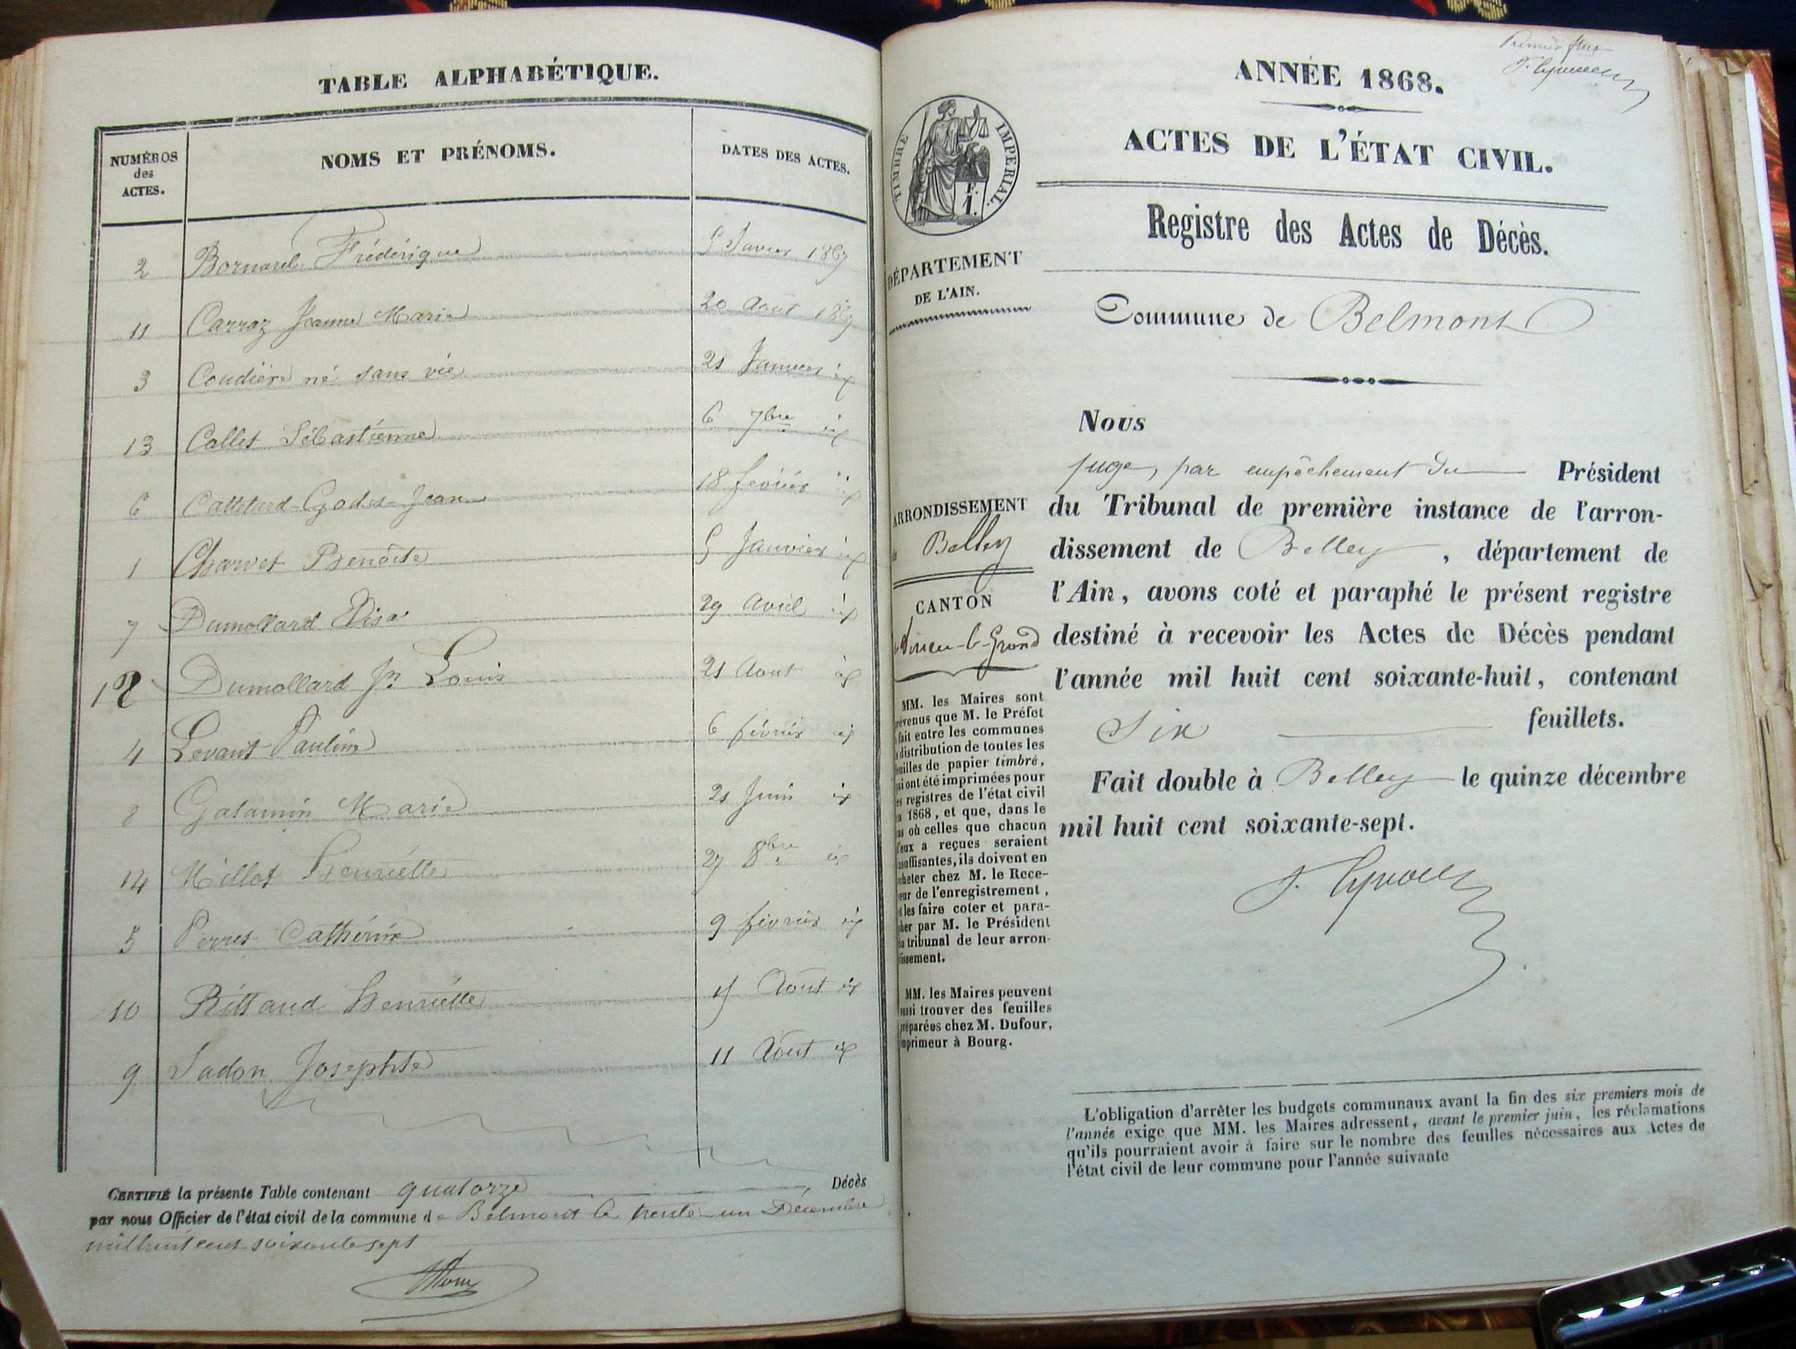 TABLE ALPHABÉTIQUE.
NUMÉROS des ACTES. NOMS ET PRÉNOMS. DATES DES ACTES.
2 Bornarel Frédérique 5 Janvier 1867
11 Carraz Jeanne Marie 20 Août 1867
3 Coudière né sans vie 21 Janvier
13 Callet Sébastienne 6 7bre
6 Jean 18 février
1 Charvet Benoite 5 Janvier
7 Dumollard Elisa 29 Avril
12 Dumollard Jn Louis 21 Aout
4 Levant Pauline 6 février
8 Galamin Marie 21 Juin
14 Millot Henriette 27 8bre
5 Perret Catherine 9 février
10 Rittaud Henriette 15 Août
9 Sadon Josephte 11 Août
CERTIFIÉ la présente Table contenant quatorze Décès
par nous Officier de l'état civil de la commune de Belmont le trente-un Décembre
mil huit cent soixante sept
Premier
ANNÉE 1868.
TIMBRE IMPÉRIAL.
ACTES DE L'ÉTAT CIVIL.
Registre des Actes de Décès.
DÉPARTEMENT
DE L'AIN.
Commune de Belmont
Nous
juge, par empêchement du Président
du Tribunal de première instance de l'arron-
dissement de Belley, département de
l'Ain, avons coté et paraphé le présent registre
destiné à recevoir les Actes de Décès pendant
l'année mil huit cent soixante-huit, contenant
Six feuillets.
Fait double à Belley le quinze décembre
mil huit cent soixante-sept.
ARRONDISSEMENT
Belley
CANTON
Virieu-le-Grand
MM. les Maires sont
prévenus que M. le Préfet
fait entre les communes
distribution de toutes les
feuilles de papier timbré,
qui ont été imprimées pour
les registres de l'état civil
1868, et que, dans le
cas où celles que chacun
d'eux a reçues seraient
insuffisantes, ils doivent en
acheter chez M. le Rece-
veur de l'enregistrement,
et les faire coter et para-
pher par M. le Président
du tribunal de leur arron-
dissement.
MM. les Maires peuvent
aussi trouver des feuilles
préparées chez M. Dufour,
imprimeur à Bourg.
L'obligation d'arrêter les budgets communaux avant la fin des six premiers mois de
l'année exige que MM. les Maires adressent, avant le premier juin, les réclamations
qu'ils pourraient avoir à faire sur le nombre des feuilles nécessaires aux Actes de
l'état civil de leur commune pour l'année suivante